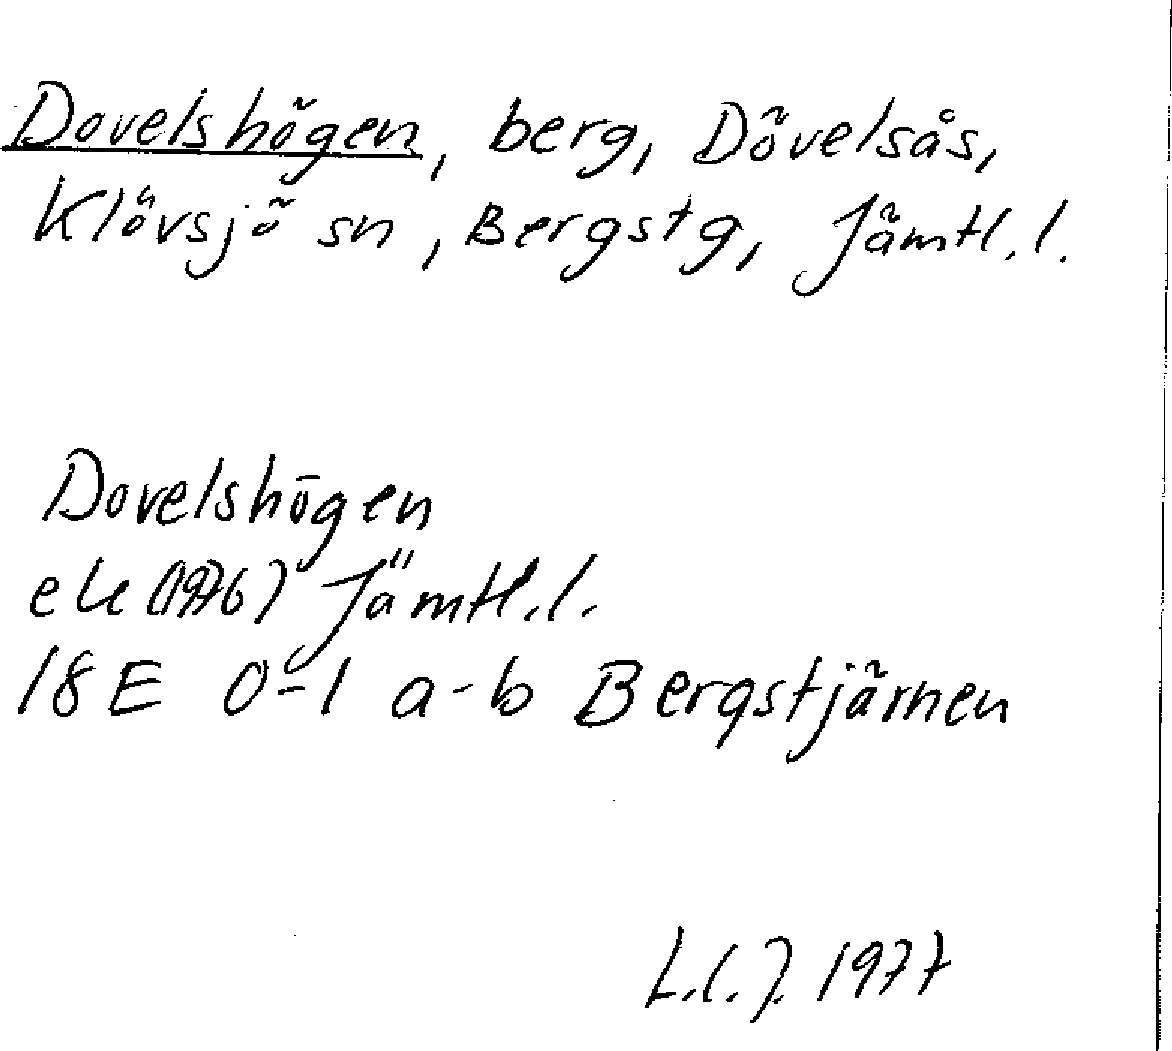 Dovelshögen, berg, Dövelsås,
Klövsjö sn, Bergstg, Jämtl. l.
Dovelshögen
ek (1976) Jämtl. l.
18E 0-1 a-b Bergstjärnen
L.C.J. 1977